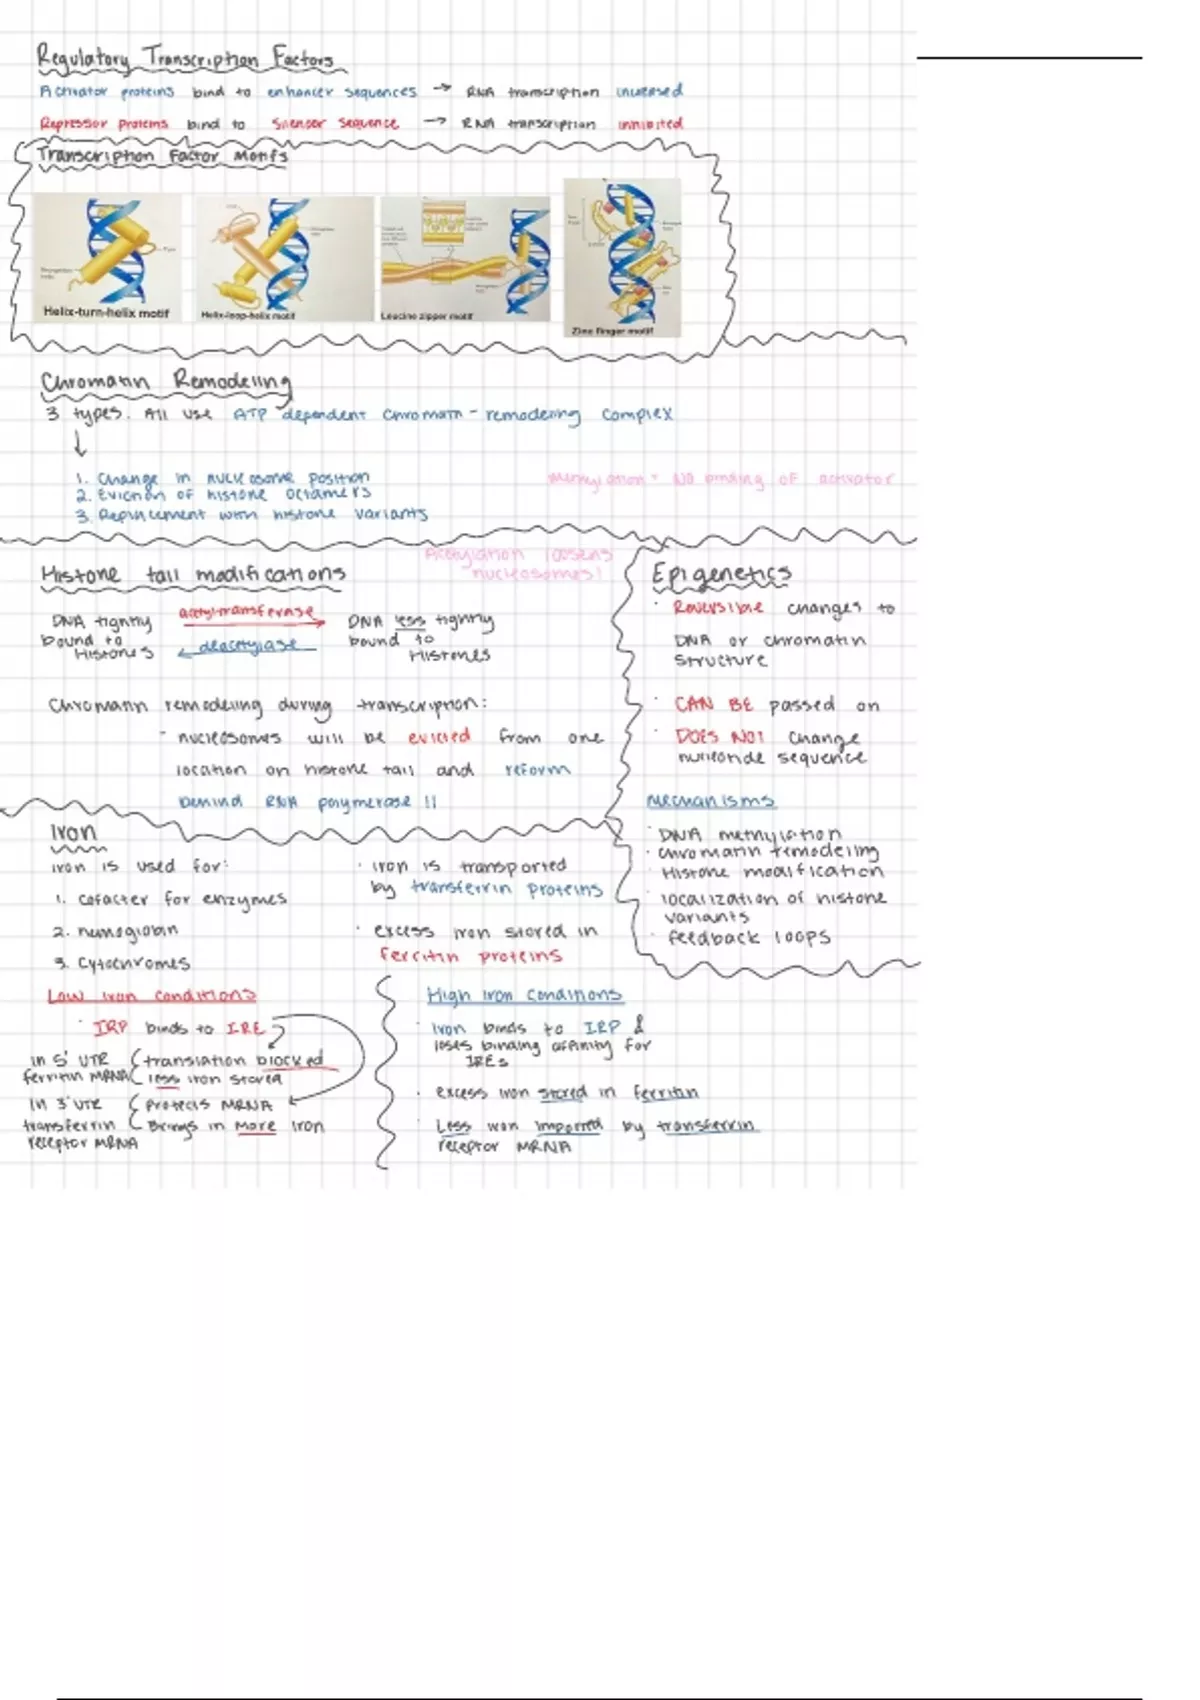 Regulatory Transcription Factors
Activator proteins bind to enhancer sequences → RNA transcription increased
Repressor proteins bind to silencer sequence → RNA transcription inhibited
Transcription Factor Motifs
Helix-turn-helix motif
Helix-loop-helix motif
Leucine zipper motif
Zinc finger motif
Chromatin Remodeling
3 types. All use ATP dependent chromatin-remodeling complex
↓
1. Change in nucleosome position
2. Eviction of histone octamers
3. Replacement with histone variants
Methylation - NO binding of activator
Acetylation loosens
nucleosomes!
Histone tail modifications
DNA tightly
bound to
Histones
acetyltransferase
deacetylase
DNA less tightly
bound to
Histones
Chromatin remodeling during transcription:
- nucleosomes will be evicted from one
location on histone tail and reform
behind RNA polymerase II
Epigenetics
· Reversible changes to
DNA or chromatin
structure
· CAN BE passed on
· DOES NOT change
nucleotide sequence
Mechanisms
· DNA methylation
· chromatin remodeling
· Histone modification
· localization of histone
variants
· feedback loops
Iron
iron is used for:
1. cofacter for enzymes
2. hemoglobin
3. Cytochromes
· iron is transported
by transferrin proteins
· excess iron stored in
ferritin proteins
Low iron conditions
· IRP binds to IRE
in 5' UTR
ferritin mRNA
translation blocked
less iron stored
in 3' UTR
transferrin
receptor mRNA
protects mRNA
Brings in more iron
High iron conditions
· Iron binds to IRP &
loses binding affinity for
IREs
· excess iron stored in ferritin
· Less iron imported by transferrin
receptor mRNA